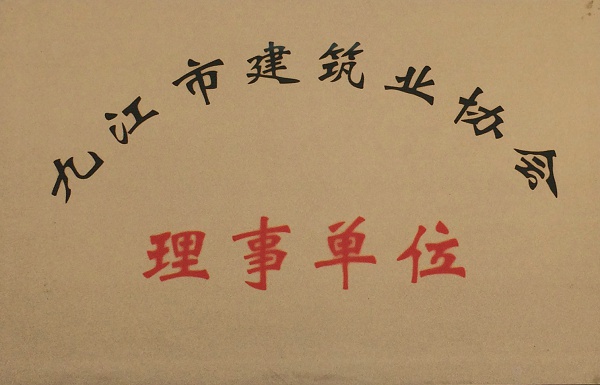 九江市建筑业协会
理事单位